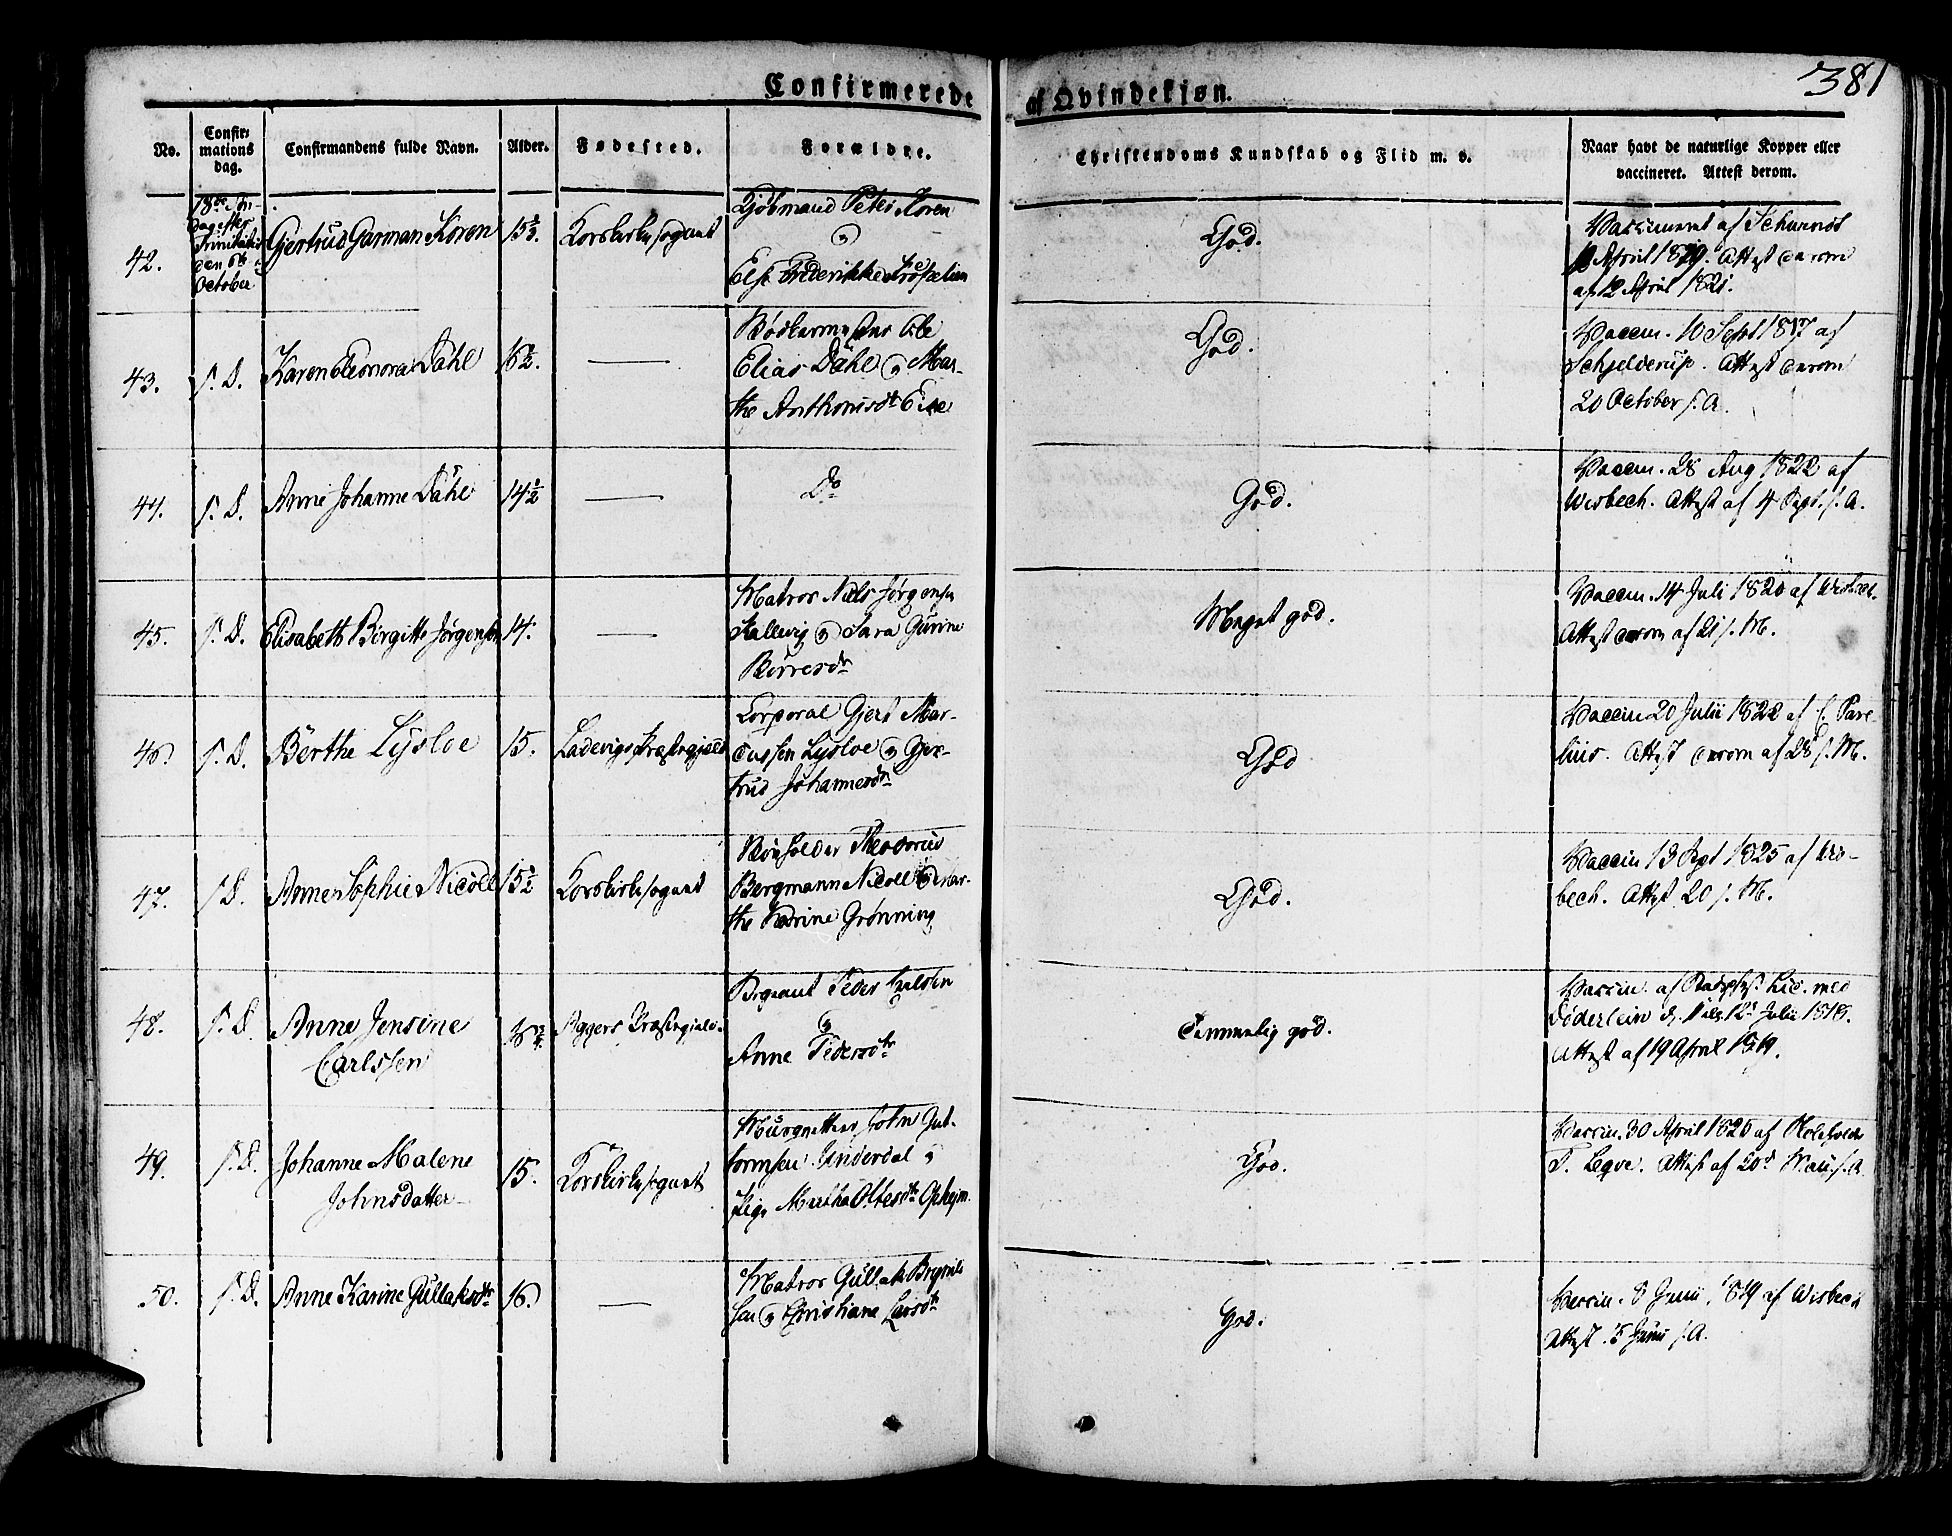 Confirmerede af Qvindekjøn.
381
No.
Confirmations dag.
Confirmandens fulde Navn.
Alder.
Fødested.
Forældre.
Christendoms Kundskab og Flid m. v.
Naar havt de naturlige Kopper eller vaccineret. Attest derom.
42.
18de Søndag efter
Trinitatis
den 6te
October
Gertrud Garman Koren
15
Korskirkesognet
Kjøbmand Peter Koren
og
Else Frederikke
God.
Vaccineret af Schmidt
April 1819. Attest derom
af 12 April 1821.
43.
s. D.
Karen Eleonora Dahl
16½.
Bødkermester Ole
Elias Dahl og Mar-
the Anthonisdr Eide
God.
Vaccin. 10 Sept 1817 af
Schjelderup. Attest derom
20 October s. A.
44.
s. D.
Anne Johanne Dahl
14½
Do
God.
Vaccin. 28 Aug 1822 af
Wisbech. Attest af 4 Sept. s. A.
45.
s. D.
Elisabeth Birgitte Jørgensen
14.
Matros Niels Jørgensen
og Sara Gurine
Børresdr
Meget god.
Vaccin. 14 Juli 1820 af Wisbech.
Attest derom af 21 s. M.
46.
s. D.
Berthe Lysloe
15.
Ladevigs Præstegjæld
Corporal Gjert Mar-
cussen Lysloe og Ger-
trud Johannesdr
God
Vaccin 20 Julii 1822 af C. Pare-
lius. Attest derom af 28 s. M.
47.
s. D.
Anne Sophie Nicoll
15½
Korskirkesognet
Theodorus
Bergmann Nicoll og Mar-
the Karine Grønning
God.
Vaccin 13 Sept 1825 af Wis-
bech. Attest 20 s. M.
48.
s. D.
Anne Jensine
Carlssen
16
Aggers Præstegjeld.
Sergeant Peder Carlsen
og
Anne Pedersdtr
Temmelig god.
Vaccin. af
Döderlein 12 Julii 1818.
Attest af 19 April 1819.
49.
s. D.
Johanne Malene
Johnsdatter
15.
Korskirkesognet
Murmester John Gut-
tormsen Underdal og
Pige Martha Ottesdtr Opheim
God.
Vaccin. 30 April 1820 af
T. Legve. Attest af 20d Maii s. A.
50.
s. D.
Anne Karine Gullaksdtr
16.
Matros Gullak Brynils
sen og Christiane Larsdtr
god.
Vaccin. Junii 1819 af Wisbech
Attest 5 Junii s. A.